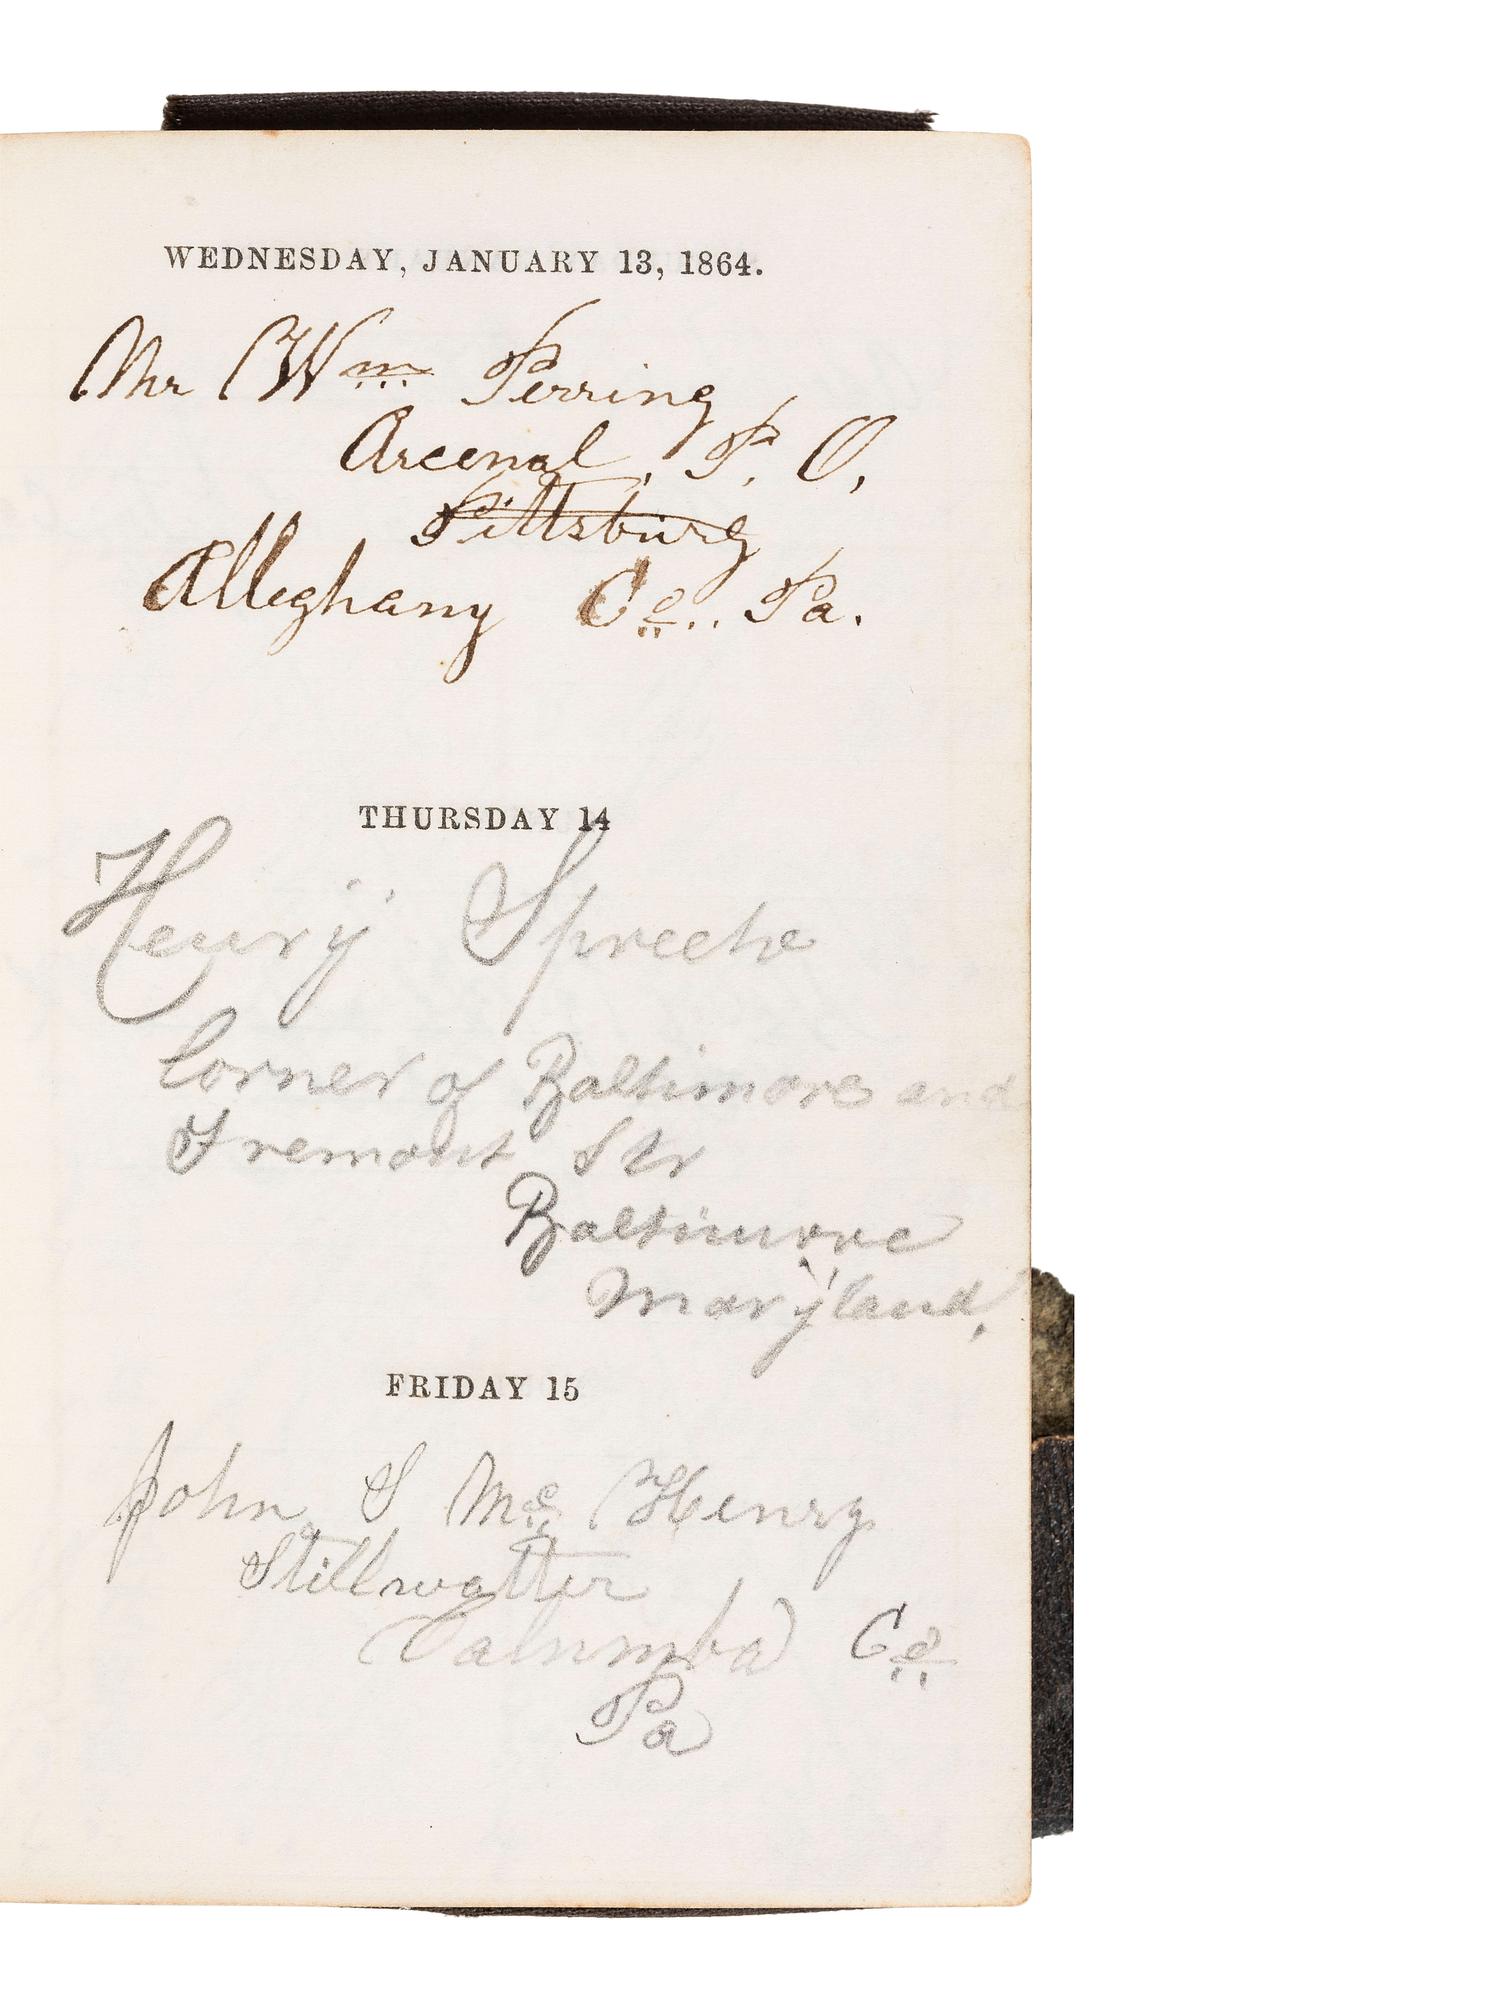 WEDNESDAY, JANUARY 13, 1864.
Mr Wm Perring
Arcenal, P. O,
Pittsburg
Alleghany Co.. Pa.
THURSDAY 14
Henry Spreehe
Corner of Baltimore and
Fremont Str
Baltimore
Maryland,
FRIDAY 15
John S Mc Henry
Stillwatter
Calumba Co
Pa